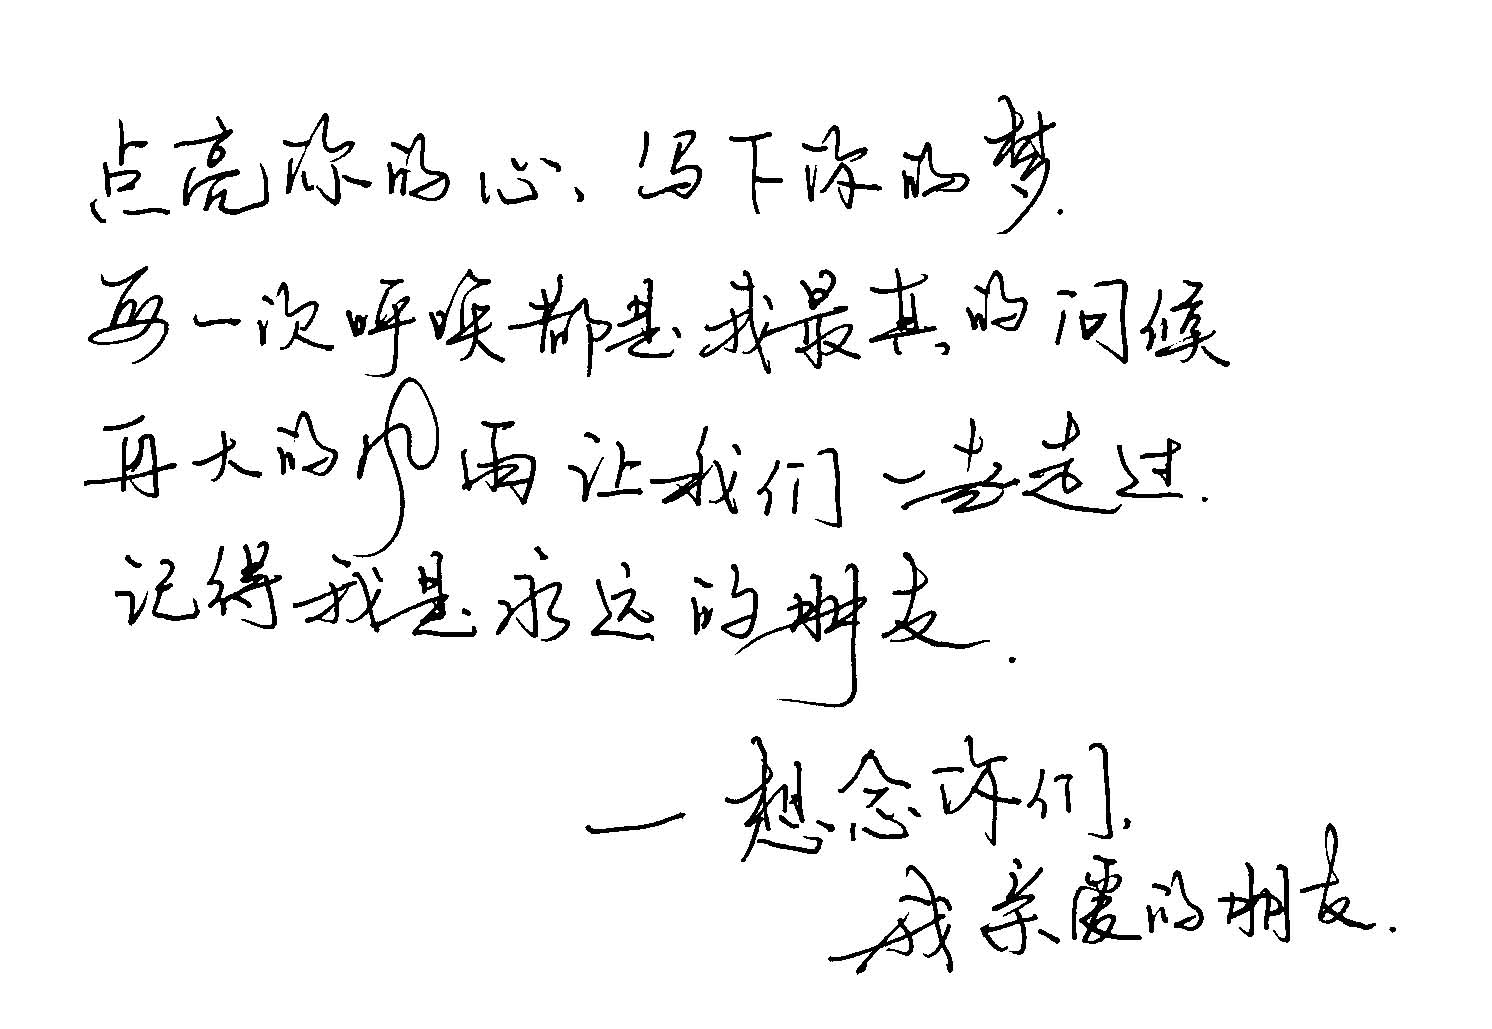 点亮你的心、写下你的梦.
每一次呼唤都是我最真的问候
再大的风雨让我们一去走过.
记得我是永远的朋友.
一想念你们.
我亲爱的朋友.